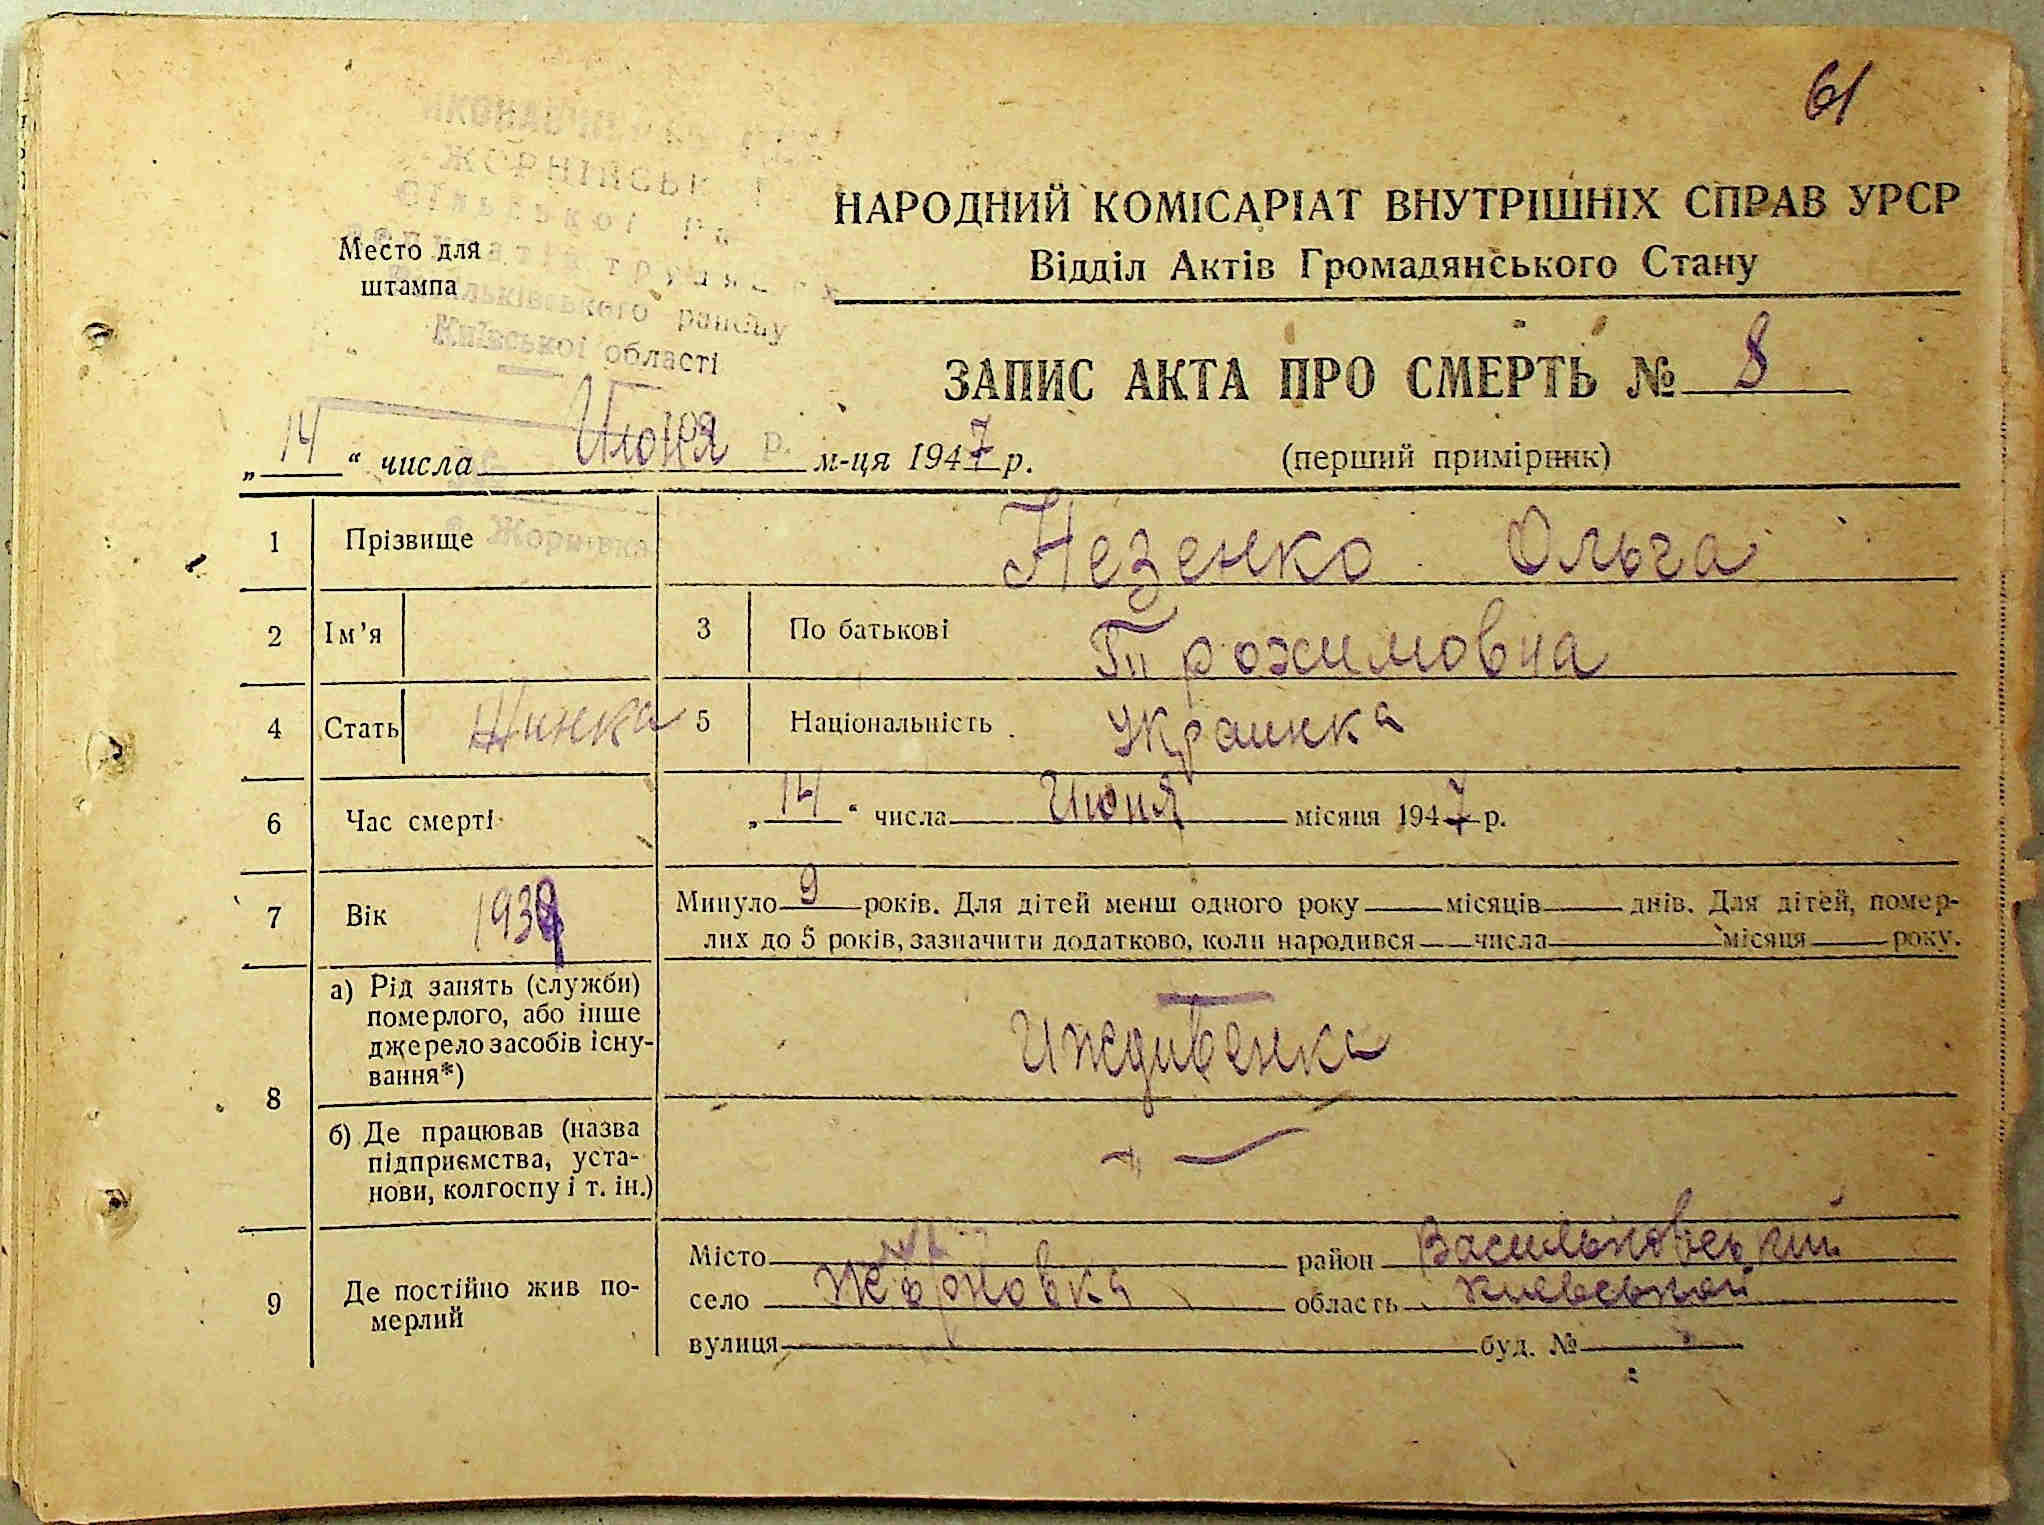 61
ЖОРНІЙСЬК
Сільської
НАРОДНИЙ КОМІСАРІАТ ВНУТРІШНІХ СПРАВ УРСР
Место для
штампа
Відділ Актів Громадянського Стану
району
Київської області
ЗАПИС АКТА ПРО СМЕРТЬ № 8
„14“ числа Июня м-ця 1947 р.
(перший примірник)
1 Прізвище Незенко Ольга
Жорнівка
2 Ім'я 3 По батькові Трохимовна
4 Стать Жинка 5 Національність Украинка
6 Час смерті „14“ числа Июня місяця 1947 р.
7 Вік 1939 Минуло 9 років. Для дітей менш одного року місяців днів. Для дітей, помер-
лих до 5 років, зазначити додатково, коли народився числа місяця року.
8 а) Рід занять (служби)
померлого, або інше
джерело засобів існу-
вання*)
Иждивенка
б) Де працював (назва
підприємства, уста-
нови, колгоспу і т. ін.)
9 Де постійно жив по-
мерлий
Місто район Васильковський
село Жорновка область Киевской
вулиця буд. №